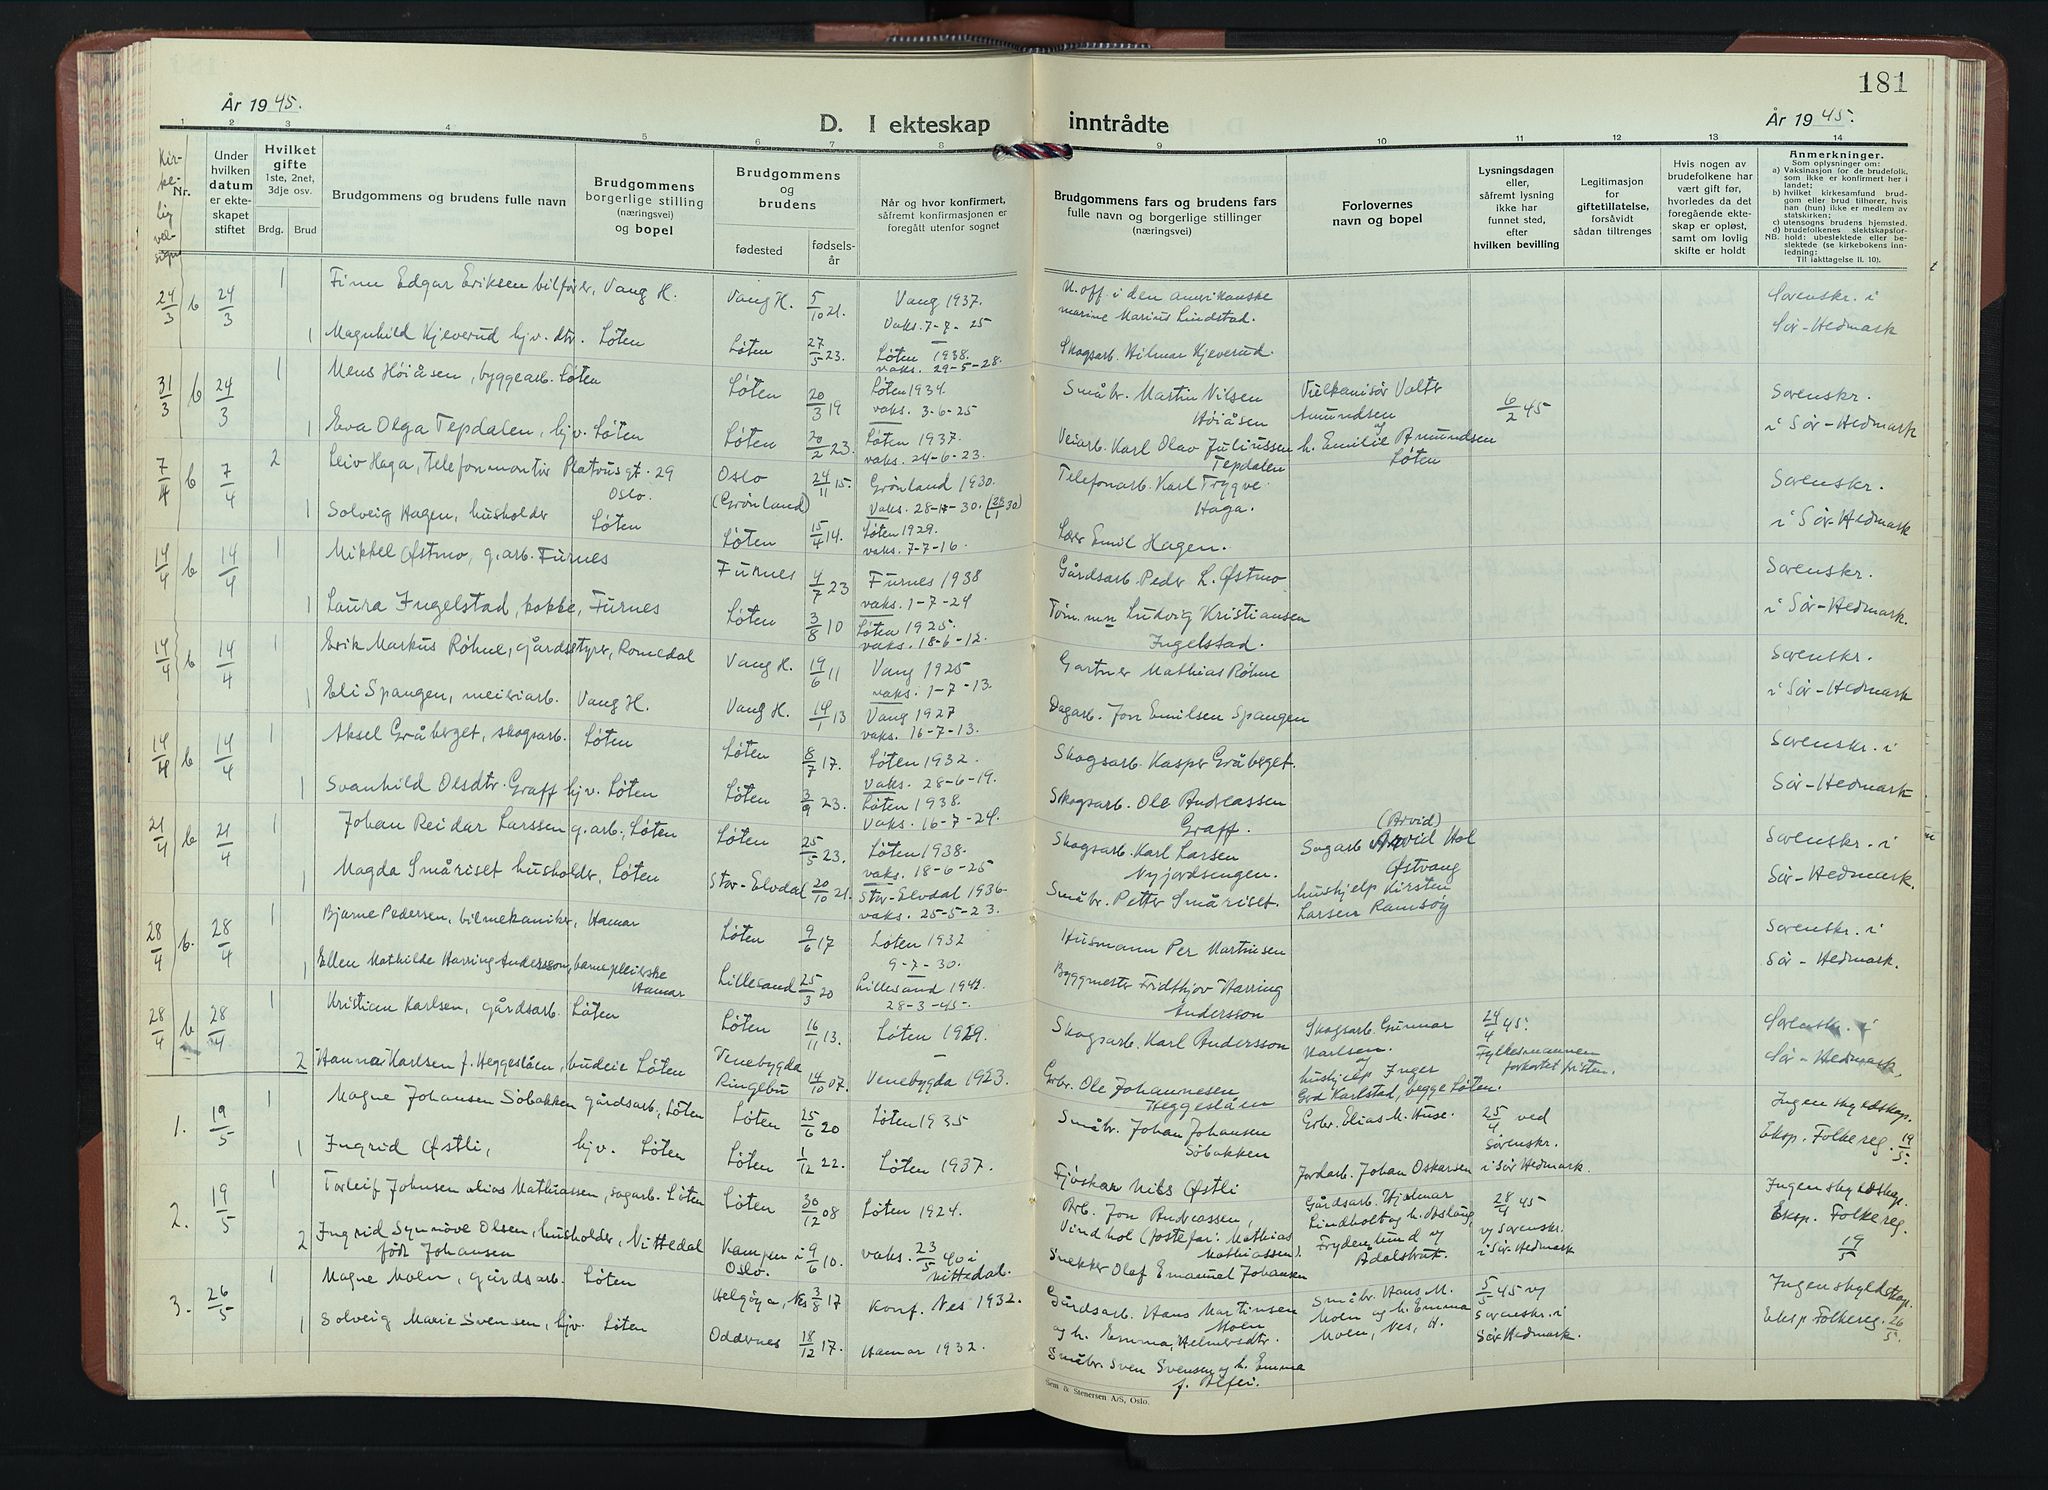 181
År 1945.
D. I ekteskap inntrådte
År 1945.
1 2 3 4 5 6 7 8 9 10 11 12 13 14
Nr.
Under hvilken datum er ekteskapet stiftet
Hvilket gifte 1ste, 2net, 3dje osv.
Brdg. Brud
Brudgommens og brudens fulle navn
Brudgommens borgerlige stilling (næringsvei) og bopel
Brudgommens og brudens
fødested
fødselsår
Når og hvor konfirmert, såfremt konfirmasjonen er foregått utenfor sognet
Brudgommens fars og brudens fars fulle navn og borgerlige stillinger (næringsvei)
Forlovernes navn og bopel
Lysningsdagen eller, såfremt lysning ikke har funnet sted, efter hvilken bevilling
Legitimasjon for giftetillatelse, forsåvidt sådan tiltrenges
Hvis nogen av brudefolkene har vært gift før, hvorledes da det foregående ekteskap er opløst, samt om lovlig skifte er holdt
Anmerkninger.
Som oplysninger om:
a) Vaksinasjon for de brudefolk, som ikke er konfirmert her i landet;
b) hvilket kirkesamfund brudgom eller brud tilhører, hvis han (hun) ikke er medlem av statskirken;
c) utensogns brudens hjemsted.
d) brudefolkenes slektskapsforhold: ubeslektede eller beslektede (se kirkebokens innledning:
NB.
Til iakttagelse II. 10).
24/3 b 24/3 1 Finn Edgar Eriksen bilfører, Vang H. Vang H. 5/10 21. Vang 1937. Vaks. 7-7-25 U. off. i den amerikanske marine Marius Lindstad. Sorenskr. i Sør-Hedmark
1 Magnhild Kjeverud hjv. dtr. Løten Løten 27/5 23. Løten 1938. vaks. 29-5-28. Skogsarb. Hilmar Kjeverud.
31/3 b 24/3 1 Mens Høiåsen, byggearb. Løten Løten 20/3 19 Løten 1934. vaks. 3-6-25 Småbr. Martin Nilsen Høiåsen Vulkanisør Valter Amundsen og h. Emilie Amundsen Løten 6/2 45 Sorenskr. i Sør-Hedmark
1 Eva Olga Tepdalen, hjv. Løten Løten 20/2 23. Løten 1937. vaks. 24-6-23. Veiarb. Karl Olav Juliussen Tepdalen
7/4 b 7/4 2 Leiv Haga, Telefonmontør Platousgt. 29 Oslo. Oslo (Grønland) 24/11 15. Grønland 1930. Vaks. 28-11-30. Telefonarb. Karl Trygve Haga. Sorenskr. i Sør-Hedmark
1 Solveig Hagen, husholder Løten Løten 15/4 14. Løten 1929. vaks. 7-7-16. Lærer Emil Hagen.
14/4 b 14/4 1 Mikkel Østmo, g.arb. Furnes Furnes 4/7 23 Furnes 1938 vaks. 1-7-24 Gårdsarb. Peder L. Østmo Sorenskr. i Sør-Hedmark.
1 Laura Ingelstad, kokke, Furnes Løten 3/8 10 Løten 1925. vaks. 18-6-12. Tøm.mnn Ludvig Kristiansen Ingelstad.
14/4 b 14/4 1 Erik Markus Røhne, gårdsstyrer, Romedal Vang H. 19/6 11 Vang 1925 vaks. 1-7-13. Gartner Mathias Røhne Sorenskr. i Sør-Hedmark
1 Eli Spangen, meieriarb. Vang H. Vang H. 14/1 13 Vang 1927 vaks. 16-7-13. Dagarb. Jon Emilsen Spangen
14/4 b 14/4 1 Aksel Gråberget, skogsarb. Løten Løten 8/7 17. Løten 1932. Vaks. 28-6-19. Skogsarb. Kasper Gråberget. Sorenskr. i Sør-Hedmark
1 Svanhild Olsdtr. Graff hjv. Løten Løten 3/9 23. Løten 1938. Vaks. 16-7-24. Skogsarb. Ole Andreassen Graff.
21/4 b 21/4 1 Johan Reidar Larssen g.arb., Løten Løten 25/5 23. Løten 1938. vaks. 18-6-25 Skogsarb. Karl Larsen Nyjordsengen. Sagarb. (Arvid) Arvid Hol Østvang Sorenskr. i Sør-Hedmark.
1 Magda Småriset husholder, Løten Stor-Elvdal 20/10 21. Stor-Elvdal 1936. vaks. 25-5-23. Småbr. Petter Småriset. hushjelp Kirsten Larsen Ramsøy
28/4 b. 28/4 1 Bjarne Pedersen, bilmekaniker, Hamar Løten 9/6 17 Løten 1932 9-7-30. Husmann Per Martinsen Sorenskr. i Sør-Hedmark.
1 Ellen Mathilde Harring Andersson, barnepleierske Hamar Lillesand 25/3 20 Lillesand 28-3-45. Byggmester Fridthjov Harring Andersson
28/4 b 28/4 1 Kristian Karlsen, gårdsarb. Løten Løten 16/11 13. Løten 1929. Skogsarb. Karl Andersson Skogsarb. Gunnar Karlsen. og hushjelp Inger Grd Karlstad, begge Løten. 24/4 45. Fylkesmannen forkortet fristen. Sorenskr. i Sør-Hedmark.
2 Hanna Karlsen f. Heggeslåen, budeie Løten Venebygda Ringebu 14/10 07. Venebygda 1923. Grbr. Ole Johannesen Heggeslåen
1. 19/5 1 Magne Johansen Søbakken gårdsarb., Løten Løten 25/6 20 Løten 1935 Småbr. Johan Johansen Søbakken Grbr. Elias M. Huse. 25/4 ved Sorenskr. i Sør Hedmark. Ingen skyldskap. Eksp. Folkereg. 19/5.
1 Ingrid Østli, hjv. Løten Løten 1/12 22. Løten 1937. Fjøskar Nils Østli Jordarb. Johan Oskarsen
2. 19/5 1 Torleif Johnsen alias Mathiassen, sagarb. Løten Løten 30/12 08 Løten 1924. Arb. Jon Andreassen, Vindhol (fosterfar: Mathias Mathiassen). Gårdsarb. Hjalmar Lindholt og h. Aslaug Frydenlund og Ådalsbruk. 28/4 45 v/ Sorenskr. i Sør-Hedmark Ingen skyldskap. Eksp. Folkereg. 19/5
2 Ingrid Synnøve Olsen, husholder, Nittedal født Johansen Kampen i Oslo. 9/6 10. vaks. 23/5 40 i Nittedal. Snekker Olef Emanuel Johansen
3. 26/5 1 Magne Moen, gårdsarb. Løten Helgøya, Nes 3/8 17 Konf. Nes 1932. Gårdsarb. Hans Martinsen Moen og h. Emma Helmersdtr. Småbr. Hans M. Moen og h. Emma Moen, Nes, H. 5/5 45 v/ Sorenskr. i Sør Hedmark. Ingen skyldskap. Eksp Folkereg. 26/5.
1 Solveig Marie Svensen, hjv. Løten Oddernes 18/12 17. Hamar 1932. Småbr. Sven Svensen og h. Emma f. Alfei.
Sem & Stenersen A/S, Oslo.